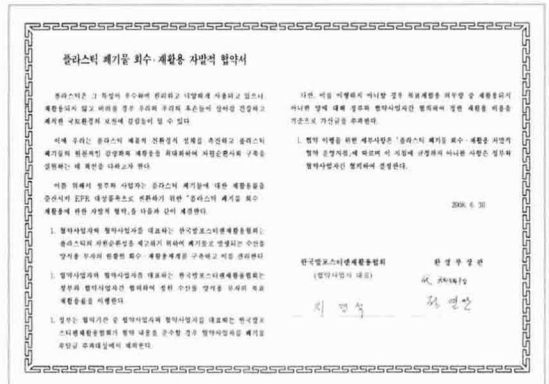 플라스틱 폐기물 회수·재활용 자발적 협약서
플라스틱은 그 특성이 우수하여 편리하고 다양하게 사용되고 있으나
재활용되지 않고 버려질 경우 우리와 우리의 후손들이 살아갈 건강하고
쾌적한 국토환경의 보전에 걸림돌이 될 수 있다
이에 우리는 플라스틱 제품의 친환경적 설계를 촉진하고 플라스틱
폐기물의 원천적인 감량화와 재활용을 최대화하여 자원순환사회 구축을
실현하는 데 최선을 다하고자 한다.
이를 위해서 정부와 사업자는 플라스틱 폐기물에 대한 재활용률을
증진시켜 EPR 대상품목으로 전환하기 위한 "플라스틱 폐기물 회수·
재활용에 관한 자발적 협약」을 다음과 같이 체결한다.
1. 협약사업자와 협약사업자를 대표하는 한국발포스티렌재활용협회는
플라스틱의 자원순환성을 제고하기 위하여 폐기물로 발생되는 수산물
양식용 부자의 원활한 회수·재활용체계를 구축하고 이를 관리한다.
1. 협약사업자와 협약사업자를 대표하는 한국발포스티렌재활용협회는
정부와 협약사업자간 협의하여 정한 수산물 양식용 부자의 목표
재활용률을 이행한다.
1. 정부는 협약기간 중 협약사업자와 협약사업자를 대표하는 한국발포
스티렌재활용협회가 협약 내용을 준수할 경우 협약사업자를 폐기물
부담금 부과대상에서 제외한다.
다만, 이를 이행하지 아니할 경우 목표재활용 의무량 중 재활용되지
아니한 양에 대해 정부와 협약사업자간 협의하여 정한 재활용 비용을
기준으로 가산금을 부과한다.
1. 협약 이행을 위한 세부사항은 「플라스틱 폐기물 회수·재활용 자발적
협약 운영지침」에 따르며 이 지침에 규정하지 아니한 사항은 정부와
협약사업자간 협의하여 결정한다.
2008. 6. 30
한국발포스티렌재활용협회 환경부장관
(협약사업자 대표)